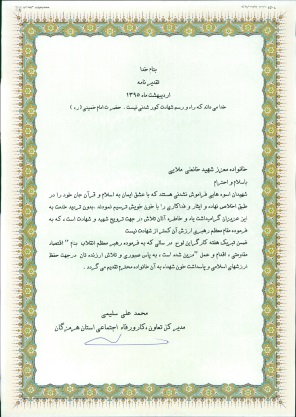 بنام خدا
تقدیر نامه
اردیبهشت ماه ۱۳۹۵
خدا می داند که راه و رسم شهادت کور شدنی نیست . حضرت امام خمینی (ره)
خانواده معزز شهید خانعلی ملایی
باسلام و احترام
شهیدان اسوه هایی فراموش نشدنی هستند که با عشق ایمان به اسلام و قرآن جان خود را در
طبق اخلاص نهاده و ایثار و فداکاری را با خون خویش ترسیم نمودند .بدون تردید خدمت به
این عزیزان گرانمایه و یاد و خاطره آنان تلاش در جهت ترویج شهید و شهادت است ، که به
فرموده مقام معظم رهبری ارزش آن کمتر از شهادت نیست
ضمن تبریک هفته کارگر این لوح در سالی که به فرموده رهبر معظم انقلاب بنام " اقتصاد
مقاومتی ، اقدام و عمل "مزین شده است ، به پاس صبوری و تلاش ارزنده تان درجهت حفظ
ارزشهای اسلامی و پاسداشت خون شهداء به آن خانواده محترم تقدیم می گردد .
محمد علی سلیمی
مدیر کل تعاون ، کار و رفاه اجتماعی استان هرمزگان